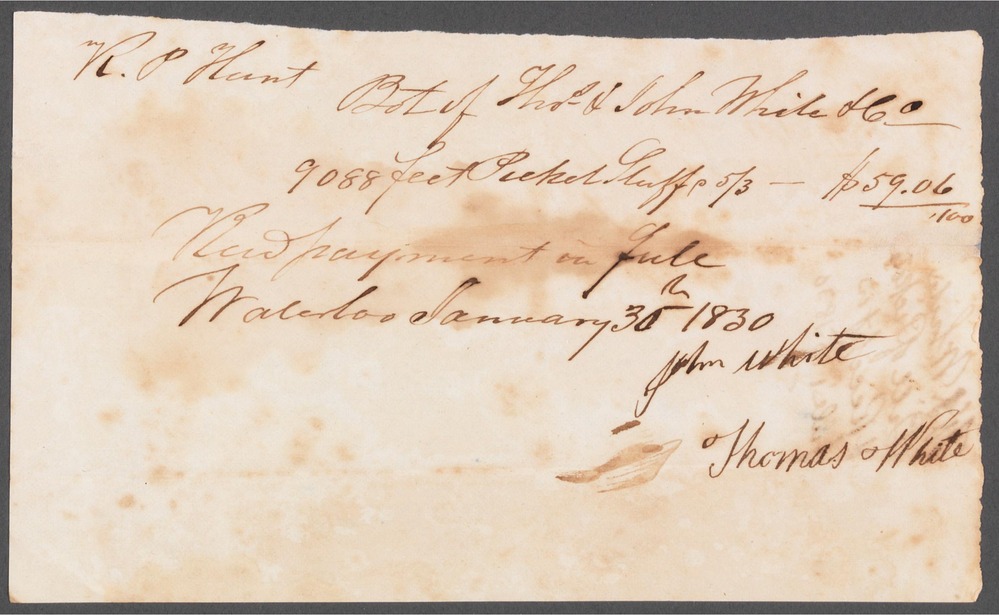 R. P Hunt
Bot of Thos & John White & Co
9088 feet Picket Stuff p 5/3 — $59.06/100
Recd payment in full
Waterloo January 30th 1830
John White
Thomas White